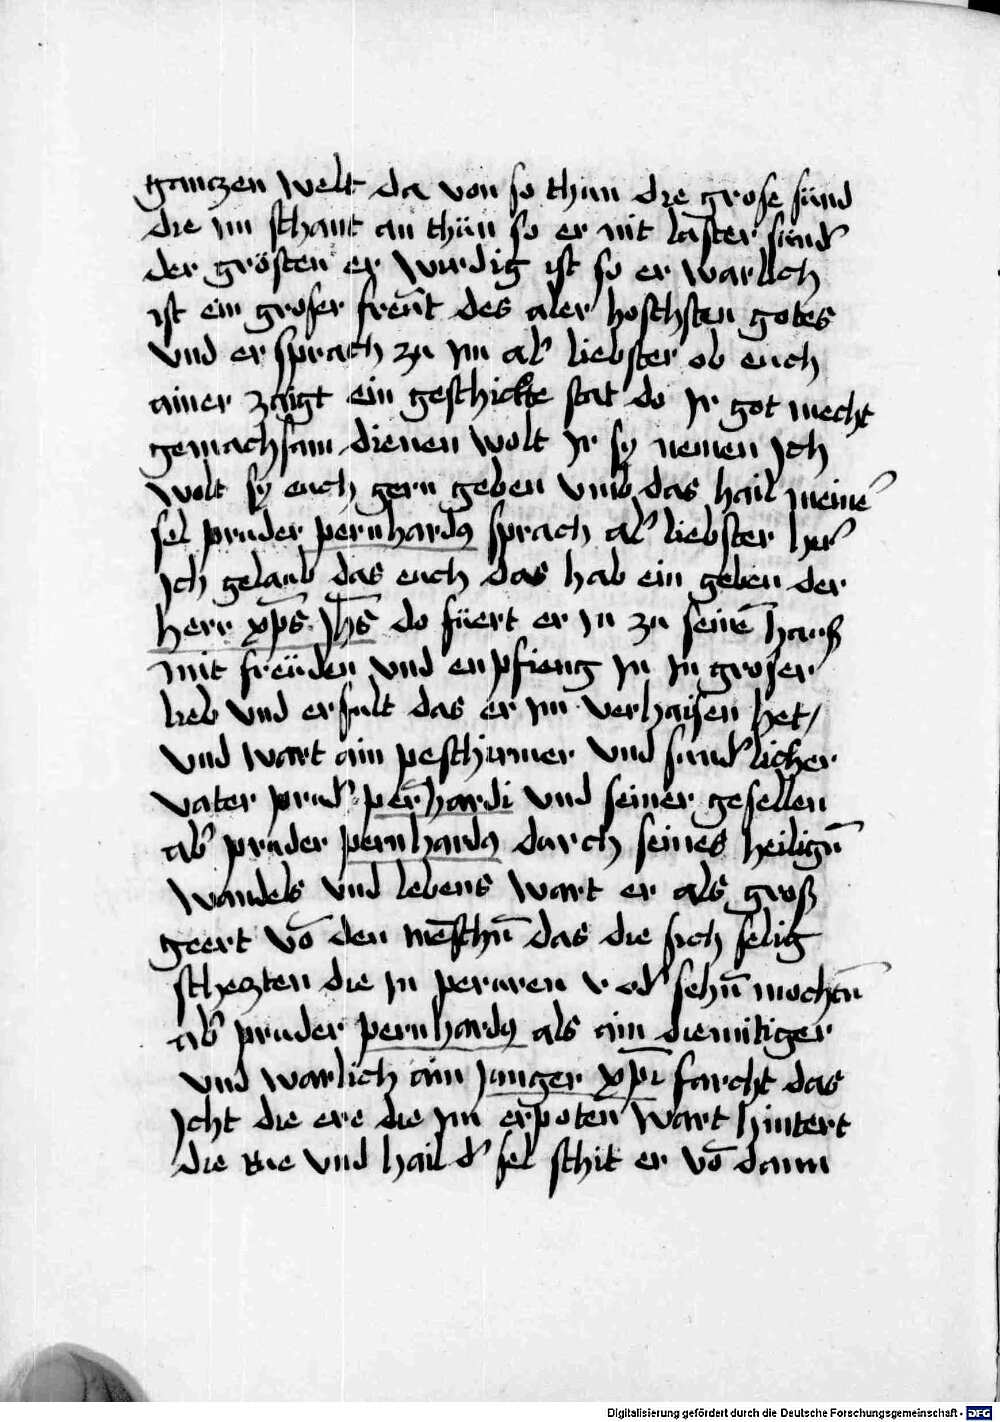 ganczen welt da von so thun die grose sünd
die im schant an thün so er mit laster sund'
der grösten er wirdig ist so er warlich
ist ein groser freūt des aler hoschsten gotes
vnd er sprach zu im al' liebster ob euch
ainer zaigt ein geschickte stat do ir got mecht
gemachsam dienen wolt ir sy nemen Ich
wolt sy euch gern geben vmb das hail meinē
sel pruder pernhardꝯ sprach al' liebster her'
Ich gelaub das euch das hab ein geben der
herr xp̄s Jh̄s do füert er in zu seinē hauß
mit freüden vnd enpfieng in in groser
lieb vnd erfult das er im verhaisen het/
vnd wart ain peschirmer vnd sund'licher
vater prud' per̄hardi vnd seiner gesellen
ab' pruder pernhardꝯ durch seines heilign̄
wandels vnd lebens wart er als groß
geert vō den mēschn̄ das die sich selig
scheczten die in peruren od' sehn̄ mochtn̄
ab' pruder pernhardꝯ als ain diemitiger
vnd warlich ain junger xp̄i forcht das
Icht die ere die im erpoten wart hintert
die rue vnd hail d' sel schit er vō dann
Digitalisierung gefördert durch die Deutsche Forschungsgemeinschaft - DFG